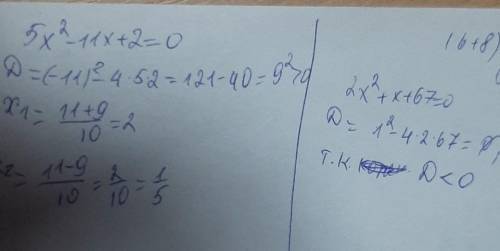 5x² - 11x + 2 = 0
D = (-11)² - 4 · 5 2 = 121 - 40 = 9² > 0
x₁ = (11 + 9) / 10 = 2
= (11 - 9) / 10 = 2/10 = 1/5
(6+8)
2x² + x + 67 = 0
D = 1² - 4 · 2 · 67 =
т.к. D < 0